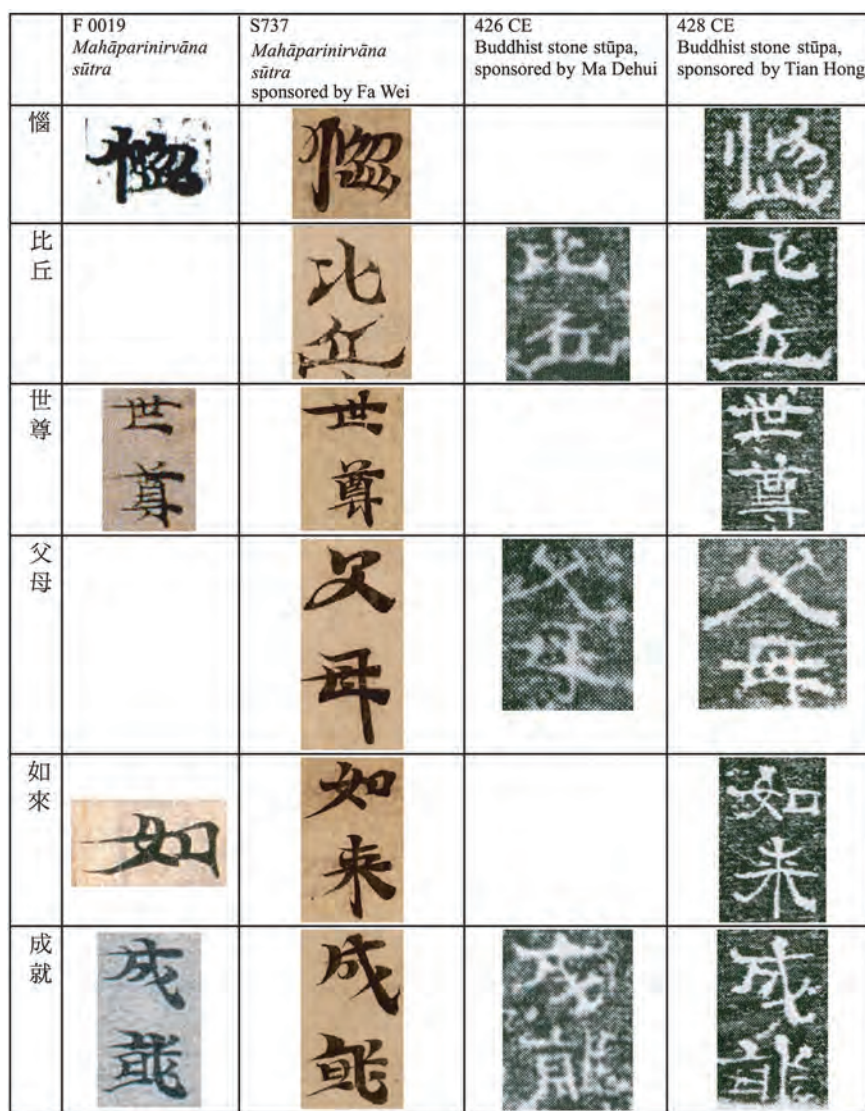 F 0019
Mahāparinirvāna
sūtra
S737
Mahāparinirvāna
sūtra
sponsored by Fa Wei
426 CE
Buddhist stone stūpa,
sponsored by Ma Dehui
428 CE
Buddhist stone stūpa,
sponsored by Tian Hong
惱
比丘
比
比
比
世尊
世尊
世尊
世尊
父母
父母
父母
父母
如來
如
如来
如来
成就
成
成
成
成